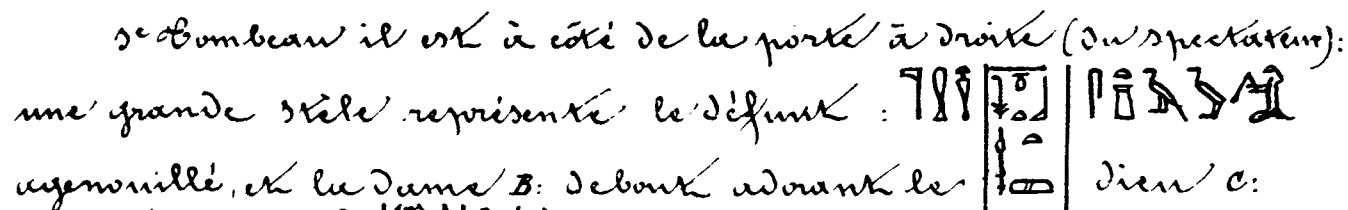 5e Tombeau il est à côté de la porte à droite (du spectateur):
une grande stèle représente le défunt :
agenouillé, et la dame B: debout adorant le dieu C: